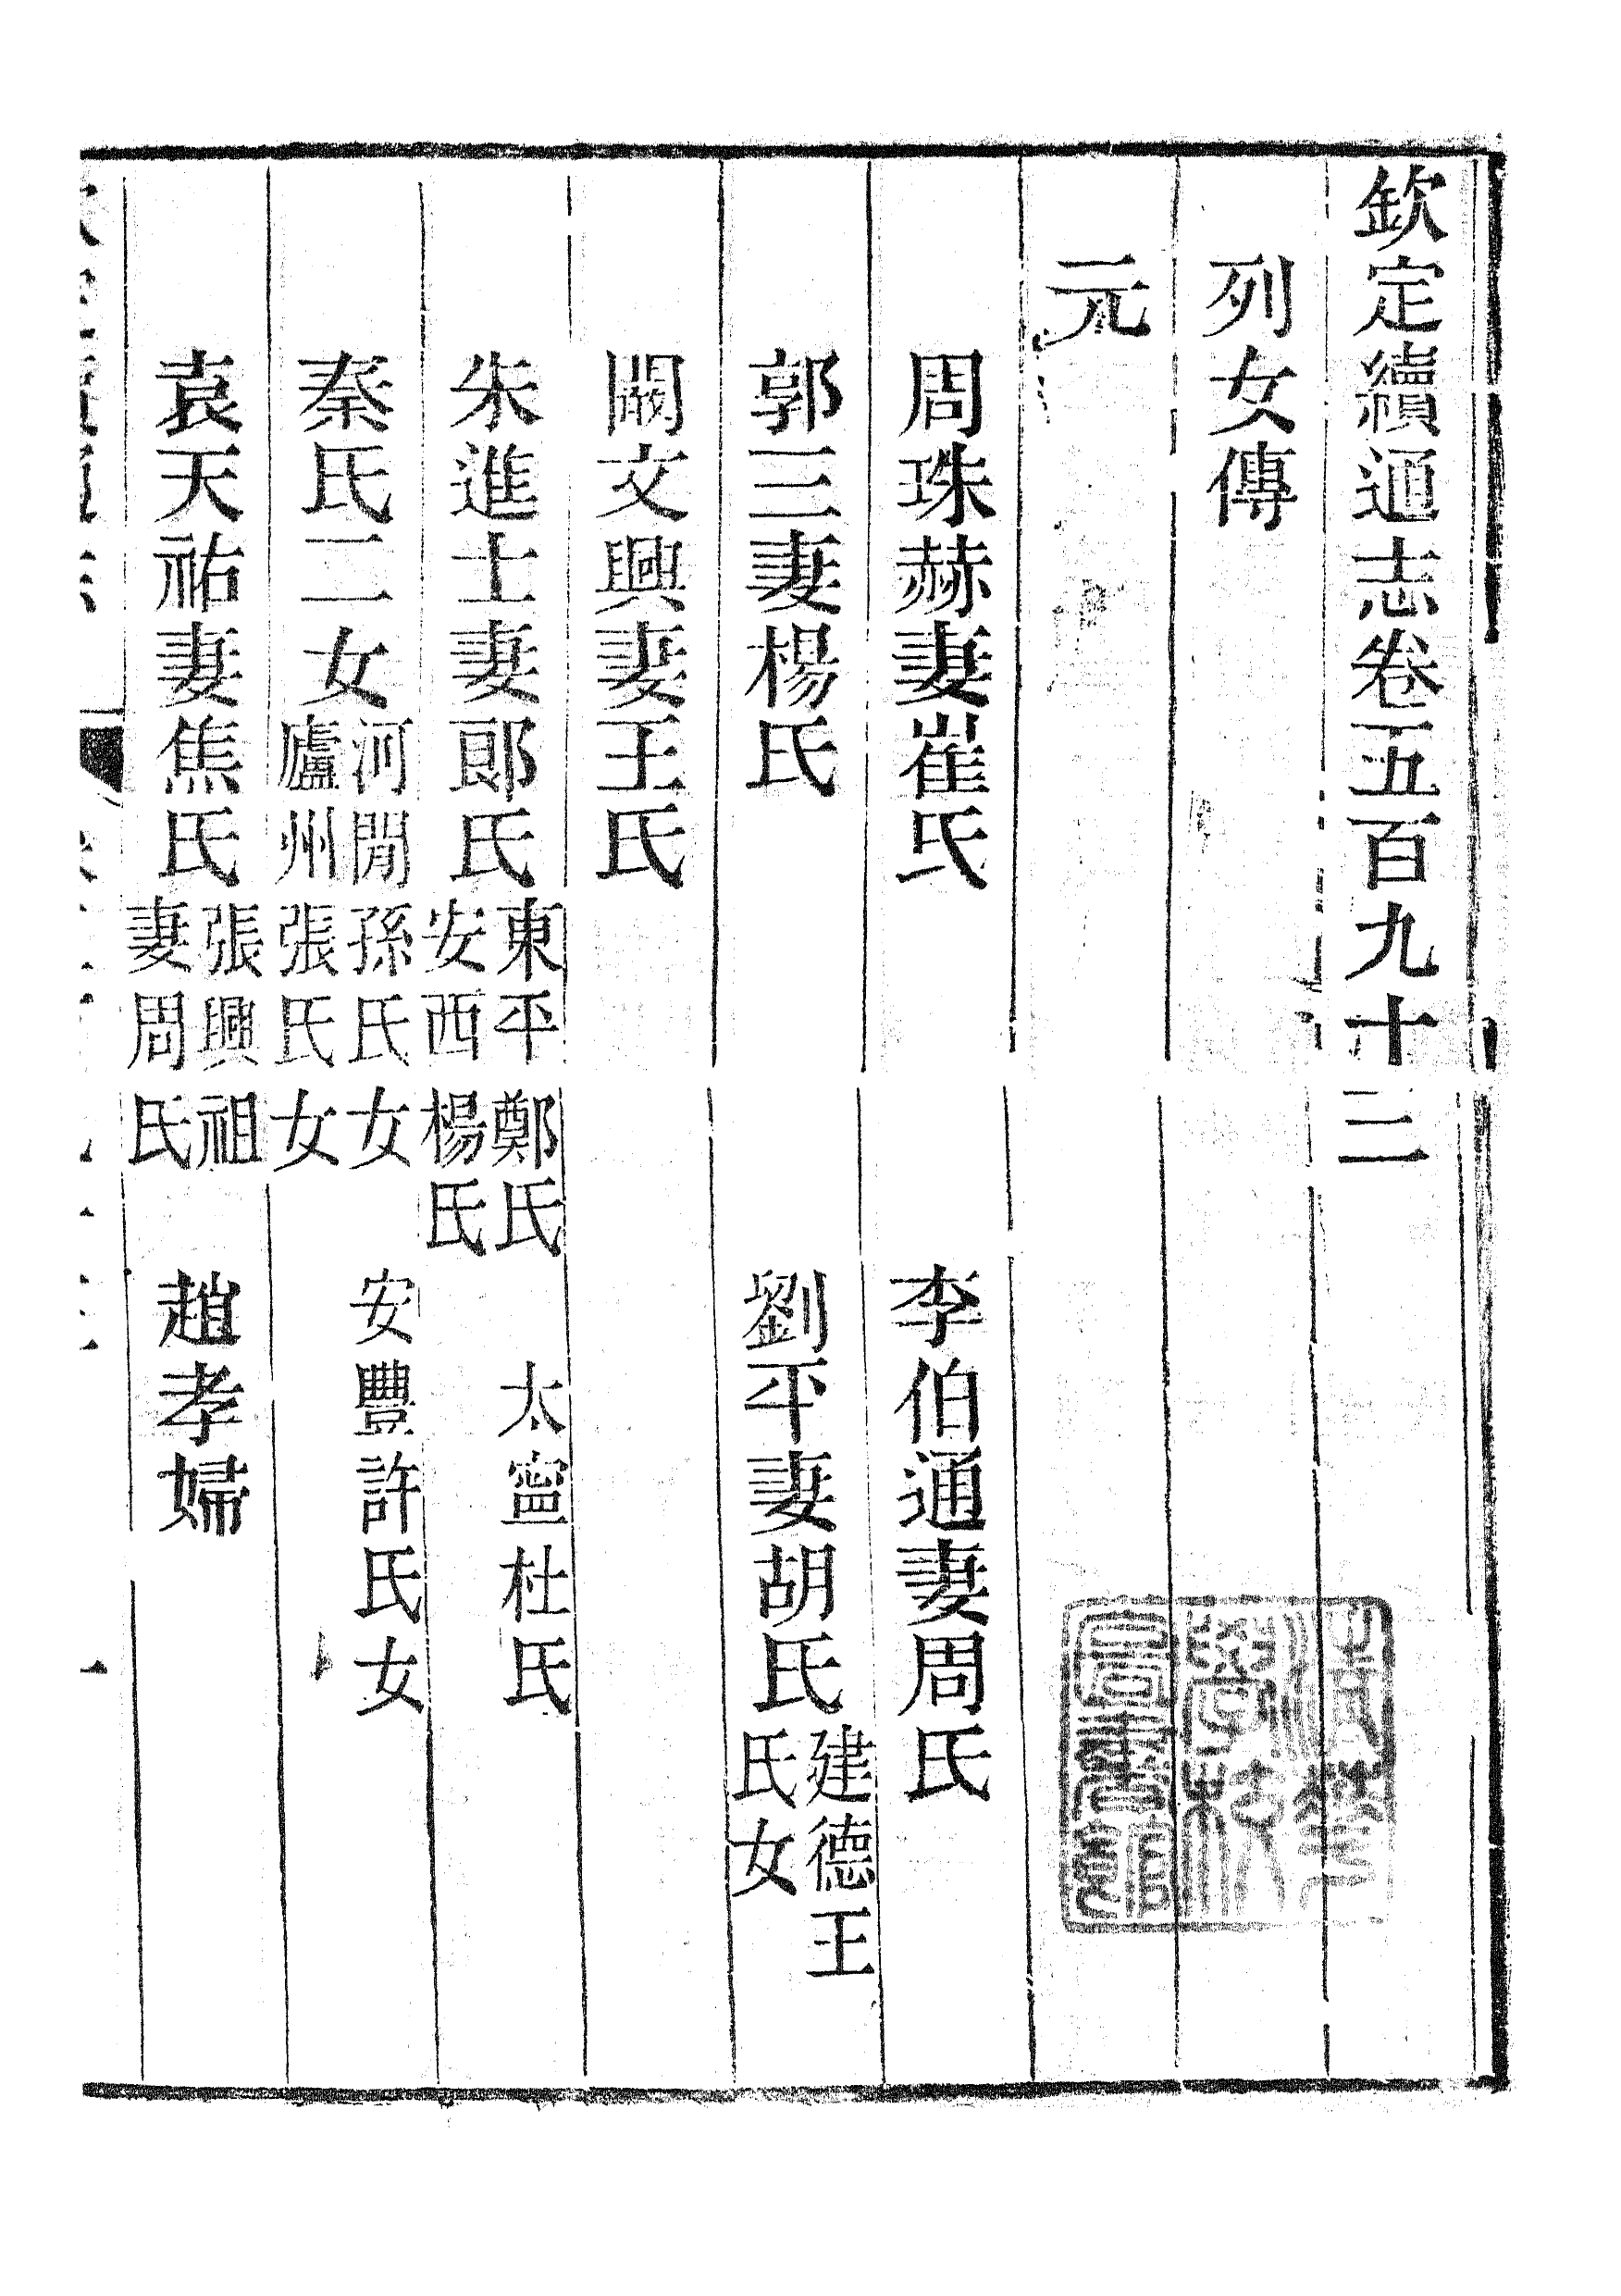 欽定續通志卷五百九十二
列女傳
元
周珠赫妻崔氏　李伯通妻周氏
郭三妻楊氏　劉平妻胡氏　建德王
氏女
闞文興妻王氏
朱進士妻郎氏　東平鄭氏　太寍杜氏
安西楊氏
秦氏二女　河間孫氏女　安豐許氏女
廬州張氏女
袁天祐妻焦氏　張興祖　趙孝婦
妻周氏
清華
學校
圖書館